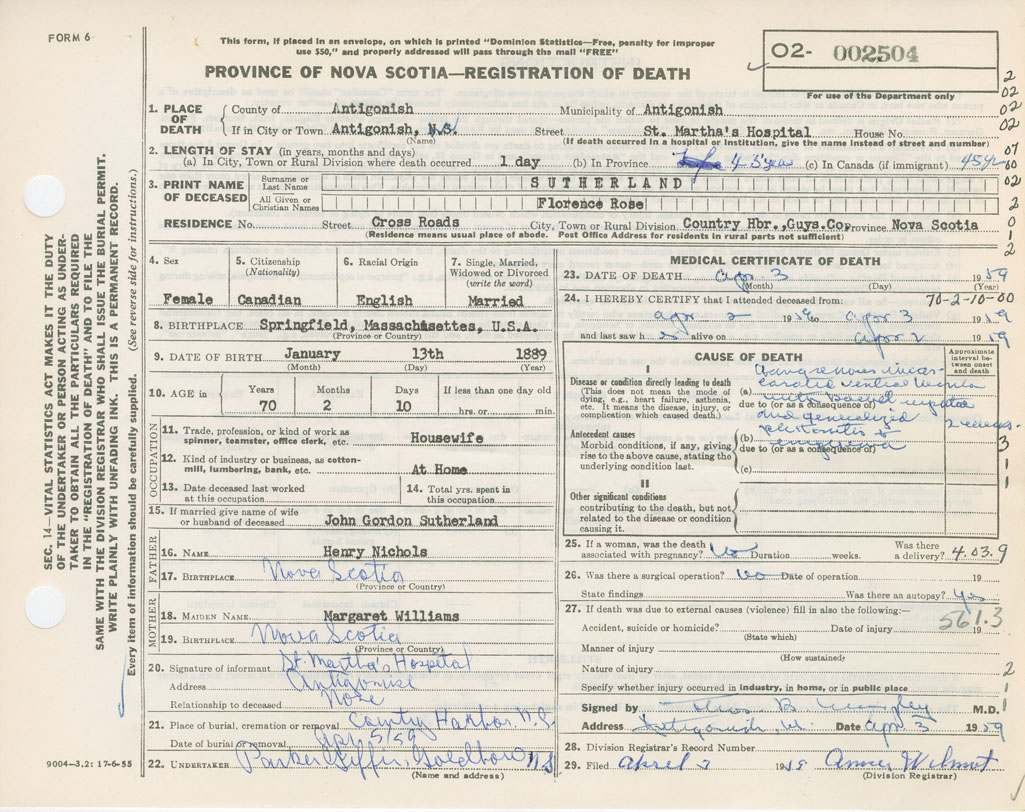 FORM 6
This form, if placed in an envelope, on which is printed "Dominion Statistics—Free, penalty for improper
use $50," and properly addressed will pass through the mail "FREE"
O2- 002504
For use of the Department only
PROVINCE OF NOVA SCOTIA—REGISTRATION OF DEATH
1. PLACE OF DEATH County of Antigonish Municipality of Antigonish
If in City or Town Antigonish, N.S. Street St. Martha's Hospital House No.
(Name) (If death occurred in a hospital or institution, give the name instead of street and number)
2. LENGTH OF STAY (in years, months and days)
(a) In City, Town or Rural Division where death occurred 1 day (b) In Province 43 yrs (c) In Canada (if immigrant) 45 yrs
3. PRINT NAME OF DECEASED Surname or Last Name SUTHERLAND
All Given or Christian Names Florence Rose
RESIDENCE No. Street Cross Roads City, Town or Rural Division Country Hbr., Guys.Co, Province Nova Scotia
(Residence means usual place of abode. Post Office Address for residents in rural parts not sufficient)
2
02
02
02
07
60
02
2
0
1
2
SEC. 14—VITAL STATISTICS ACT MAKES IT THE DUTY
OF THE UNDERTAKER OR PERSON ACTING AS UNDER-
TAKER TO OBTAIN ALL THE PARTICULARS REQUIRED
IN THE "REGISTRATION OF DEATH" AND TO FILE THE
SAME WITH THE DIVISION REGISTRAR WHO SHALL ISSUE THE BURIAL PERMIT.
WRITE PLAINLY WITH UNFADING INK. THIS IS A PERMANENT RECORD.
Every item of information should be carefully supplied. (See reverse side for instructions.)
4. Sex
Female
5. Citizenship
(Nationality)
Canadian
6. Racial Origin
English
7. Single, Married,
Widowed or Divorced
(write the word)
Married
8. BIRTHPLACE Springfield, Massachusettes, U.S.A.
(Province or Country)
9. DATE OF BIRTH January 13th 1889
(Month) (Day) (Year)
10. AGE in Years Months Days If less than one day old
70 2 10 hrs. or min.
OCCUPATION
11. Trade, profession, or kind of work as
spinner, teamster, office clerk, etc. Housewife
12. Kind of industry or business, as cotton-
mill, lumbering, bank, etc. At Home
13. Date deceased last worked
at this occupation
14. Total yrs. spent in
this occupation
15. If married give name of wife
or husband of deceased John Gordon Sutherland
FATHER
16. NAME Henry Nichols
17. BIRTHPLACE Nova Scotia
(Province or Country)
MOTHER
18. MAIDEN NAME Margaret Williams
19. BIRTHPLACE Nova Scotia
(Province or Country)
20. Signature of informant St. Martha's Hospital
Address Antigonish
Relationship to deceased None
21. Place of burial, cremation or removal County Harbor, N.S.
Date of burial or removal Apr 5/59
22. UNDERTAKER Parker Giffin, Goldboro N.S.
(Name and address)
9004—3.2: 17-6-55
MEDICAL CERTIFICATE OF DEATH
23. DATE OF DEATH Apr 3 1959
(Month) (Day) (Year)
24. I HEREBY CERTIFY that I attended deceased from: 70-2-10-00
Apr 2 1959 to Apr 3 1959
and last saw h alive on Apr 2 1959
CAUSE OF DEATH
Approximate
interval be-
tween onset
and death
I
Disease or condition directly leading to death
(This does not mean the mode of
dying, e.g., heart failure, asthenia,
etc. It means the disease, injury, or
complication which caused death.)
(a) Gangrenous incar-
cerated ventral hernia
due to (or as a consequence of)
and generalized
peritonitis
Antecedent causes
Morbid conditions, if any, giving
rise to the above cause, stating the
underlying condition last.
(b)
due to (or as a consequence of)
(c)
3
1
1
II
Other significant conditions
contributing to the death, but not
related to the disease or condition
causing it.
25. If a woman, was the death
associated with pregnancy? No Duration weeks. Was there
a delivery? 4.03.9
26. Was there a surgical operation? No Date of operation 19
State findings Was there an autopsy? Yes
27. If death was due to external causes (violence) fill in also the following:—
561.3
Accident, suicide or homicide? Date of injury 19
(State which)
Manner of injury
(How sustained)
Nature of injury 2
Specify whether injury occurred in industry, in home, or in public place 1
Signed by M.D. 1
Address Antigonish, N.S. Date Apr 3 1959
28. Division Registrar's Record Number
29. Filed April 3 1959 Wilmot
(Division Registrar)